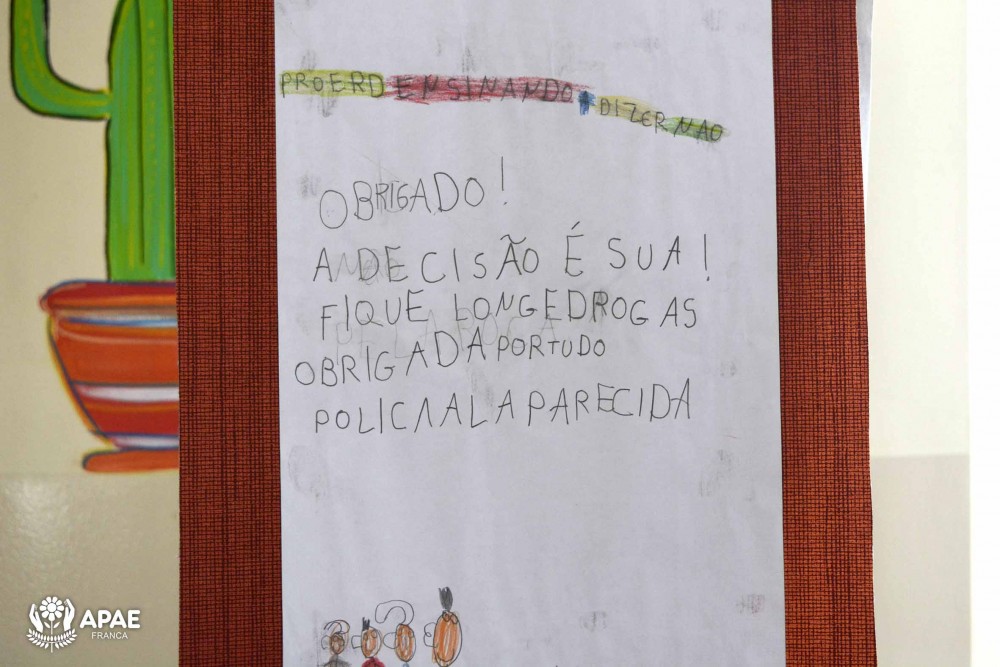 PROERD ENSINANDO A DIZER NAO
OBRIGADO!
A DECISÃO É SUA!
FIQUE LONGEDROGAS
OBRIGADA PORTUDO
POLICIAL APARECIDA
APAE
FRANCA